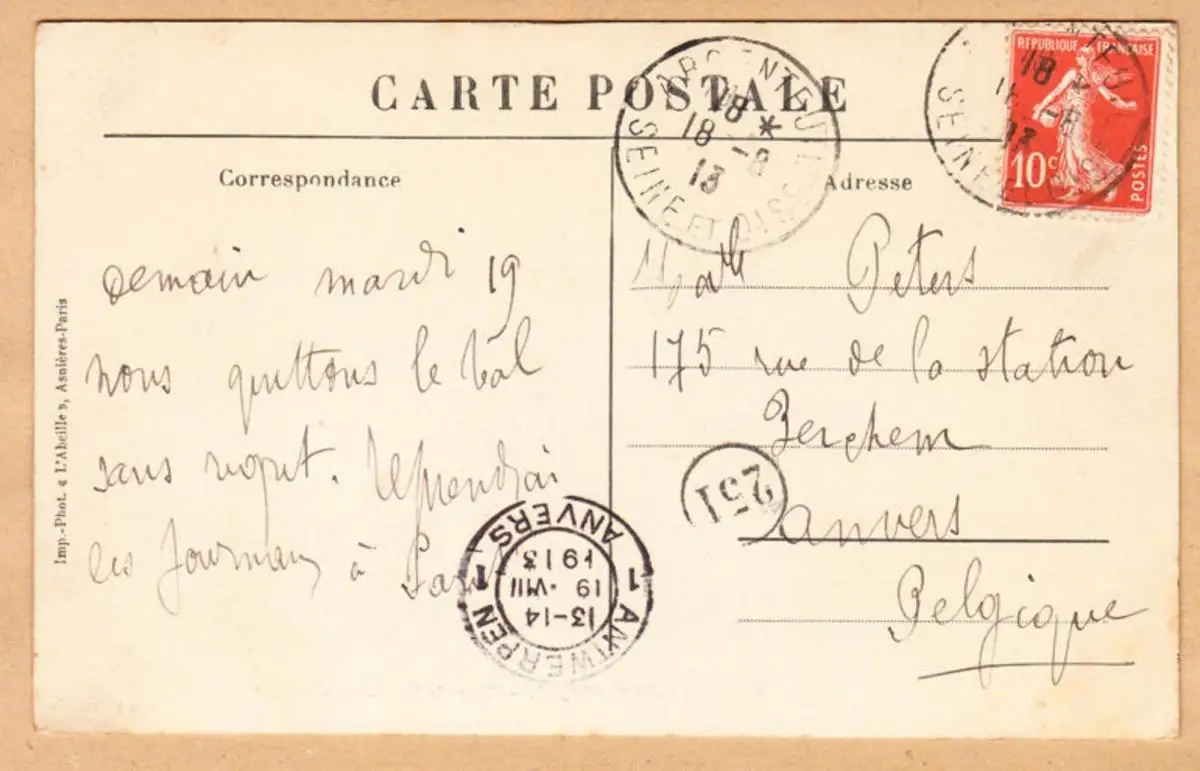 CARTE POSTALE
Correspondance
Adresse
ARGENTEUIL
18 *
18 -8
13
SEINE ET OISE
RÉPUBLIQUE FRANÇAISE
10c
POSTES
18
-8
13
demain mardi 19
nous quittons le Val
sans regret. Reprendrai
les journaux à Paris
Peters
175 rue de la station
Berchem
Anvers
Belgique
251
1 ANTWERPEN 1
13-14
19 · VIII
1913
ANVERS
Imp.-Phot. « L'Abeille », Asnières-Paris